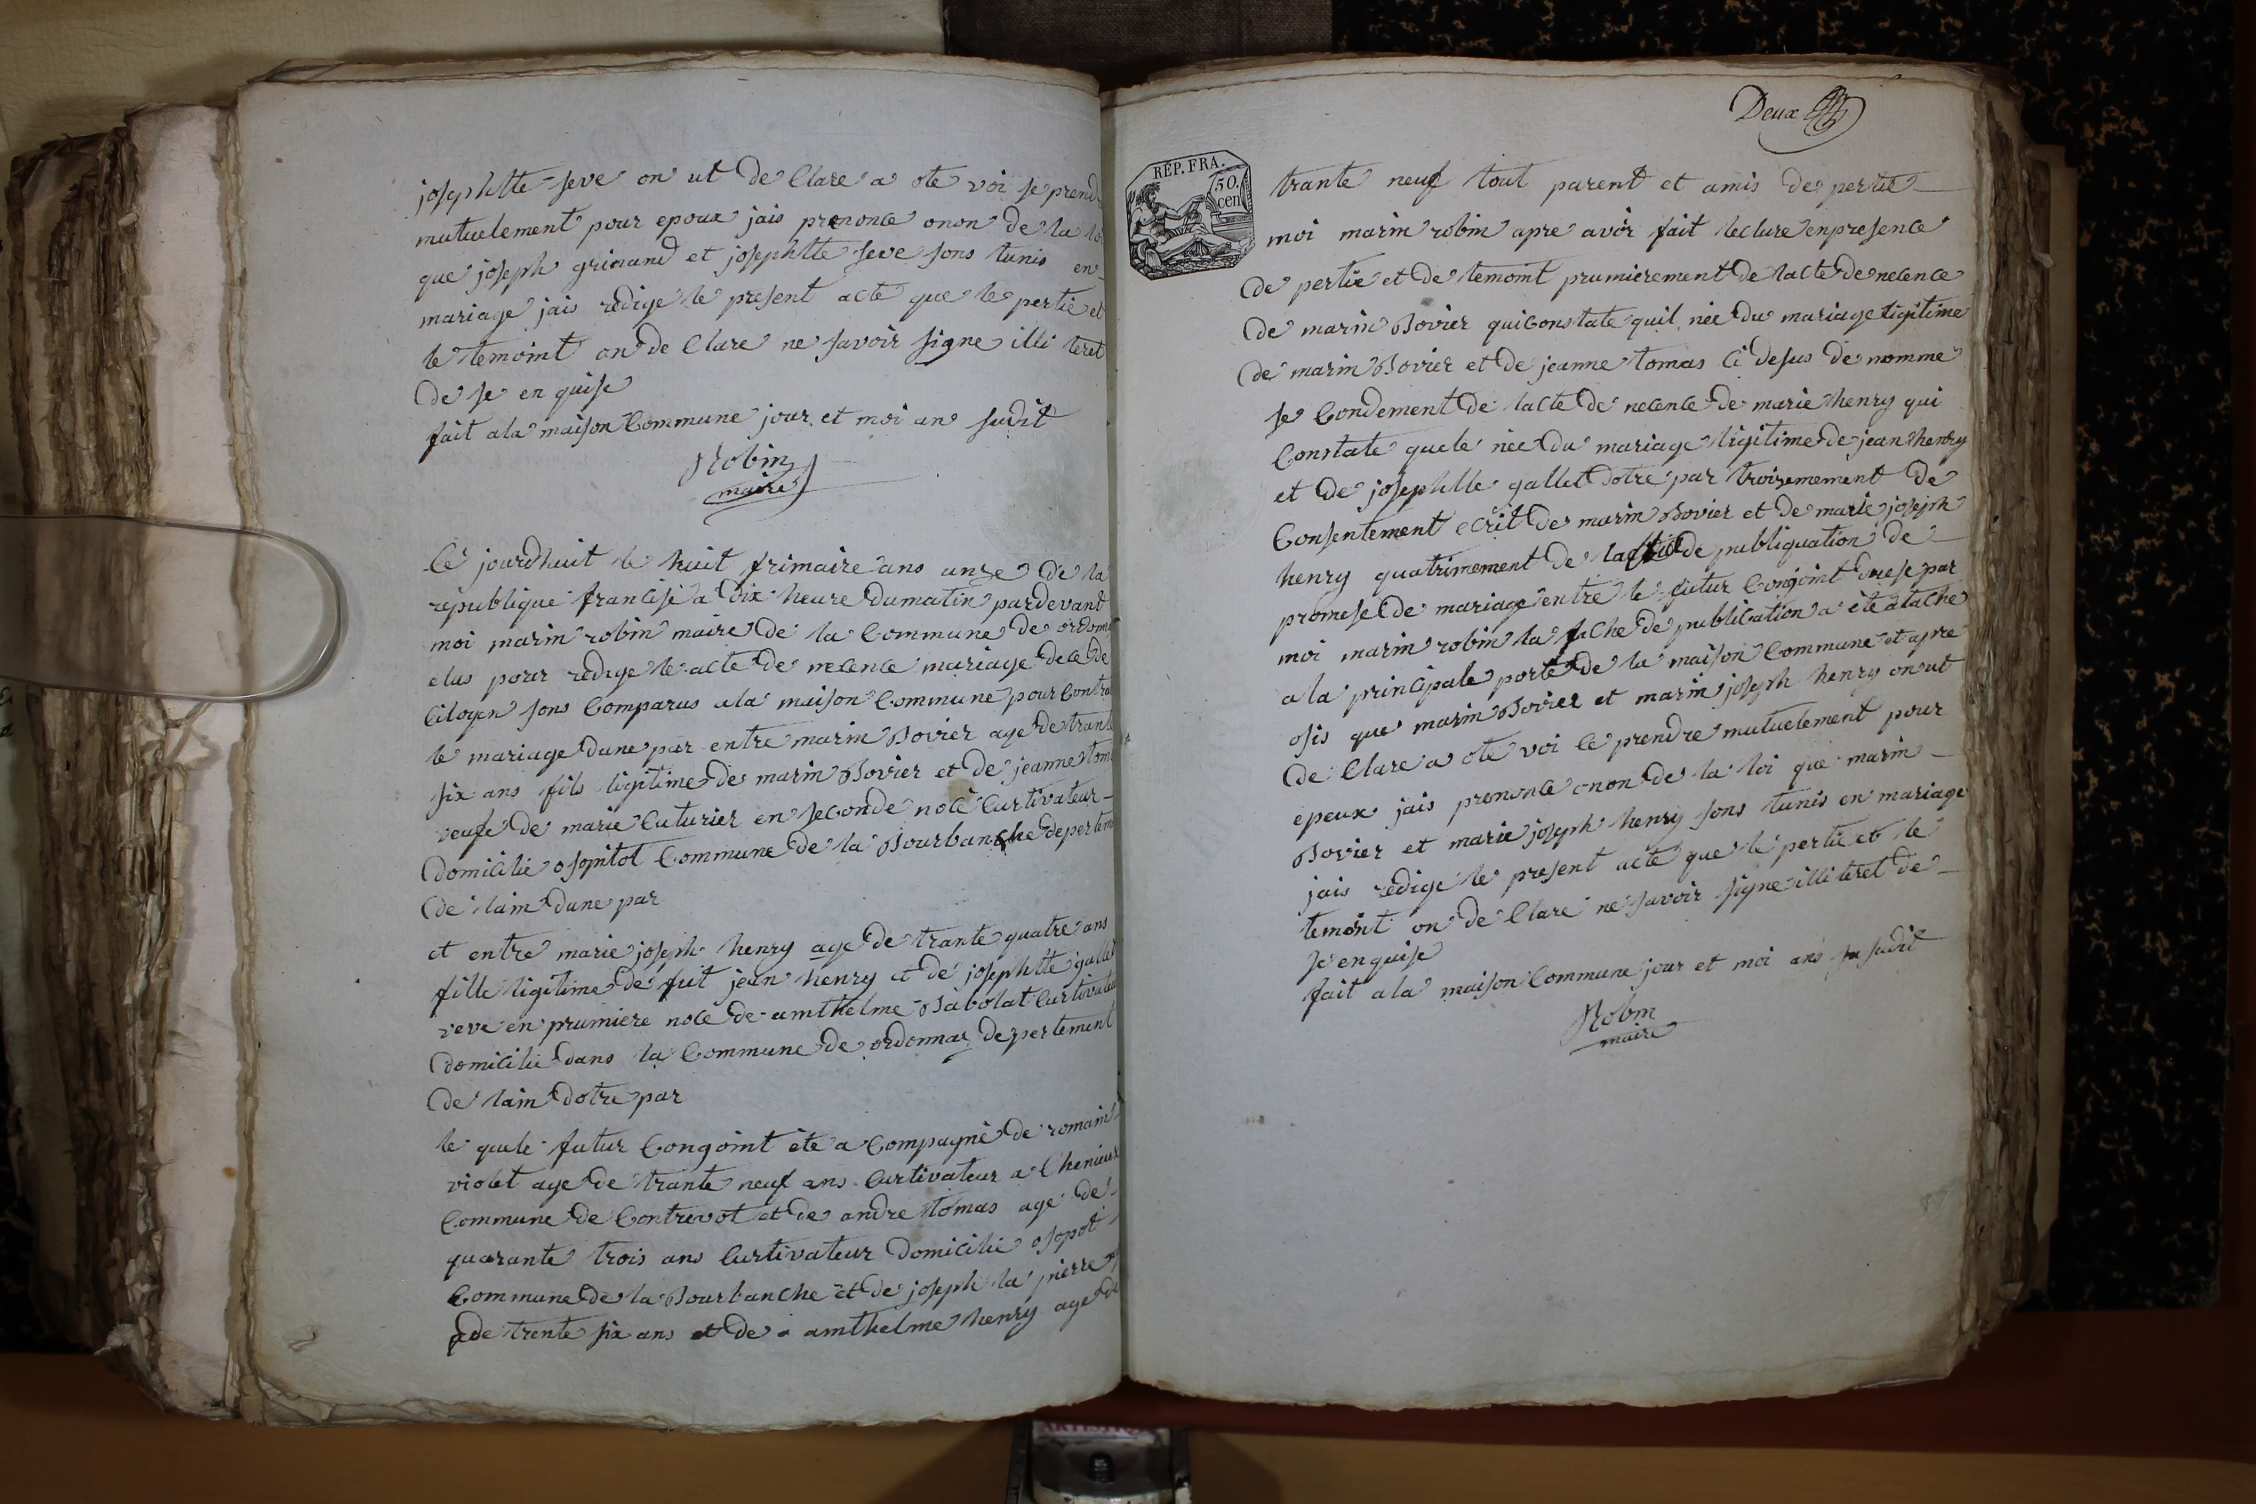 josephtte seve on ut de Clare a ote voi se prend
mutuelement pour epoux jais prononce onon de la lo
que joseph grinand et josephtte seve sons tunis en
mariage jais redige le present acte que le pertie et
le temoint on de Clare ne savoir signe illi teret
de se en quise
fait a la maison Commune jour et moi an sudit
Robin
maire
Ce jourdhuit le huit frimaire ans onze de la
republique francise a dix heure du matin pardevant
moi marin robin maire de la Commune de ordonn
elus pour redige le acte de necence mariage dece de
Citoyen sons Comparus a la maison Commune pour Contra
le mariage dune par entre marin Bovier age de trante
six ans fils ligitime de marin Bovier et de jeanne tom
veufe de marie Cuturier en seconde noce Curtivateur
domicilie ospitol Commune de la Bourbanche deperteme
de lain dune par
et entre marie joseph henry age de trante quatre ans
fille ligitime de fut jean henry et de josephtte gallet
veve en prumiere noce de amthelme Babolat Curtivateu
domicilie dans la Commune de ordonnaz depertement
de lain dotre par
le quele futur Congoint ete a Compagné de romain
violet age de trante neuf ans Curtivateur a Chenieux
Commune de Contrevot et de andre tomas age de
quarante trois ans Curtivateur domicilie ospot
Commune de la Bourbanche et de joseph la pierre
de trente six ans et de amthelme henry age de
Deux
REP. FRA.
50.
cen
trante neuf tout parent et amis de pertie
moi marin robin apre avoir fait lecture en presence
de pertie et de temoint prumierement de lacte de necence
de marin Bovier qui Constate quil née du mariage ligitime
de marin Bovier et de jeanne tomas Ci desus de nomme
se Condement de lacte de necence de marie henry qui
Constate quele née du mariage ligitime de jean henry
et de josephtte gallet dotre par troisemement de
Consentement ecrit de marin Bovier et de marie joseph
henry quatrimement de lacte de publiquation de
promese de mariage entre le futur Congoint drese par
moi marin robin la fiche de publication a ete atache
a la principale porte de la maison Commune et apre
osis que marin Bovier et marin joseph henry on ut
de Clare a ote voi Ce prendre mutuelement pour
epeux jais prononce onon de la loi que marin
Bovier et marie joseph henry sons tunis en mariage
jais redige le present acte que le pertie et le
temoint on de Clare ne savoir signe illiteret de
se enquise
fait a la maison Commune jour et moi ans su sudit
Robin
maire